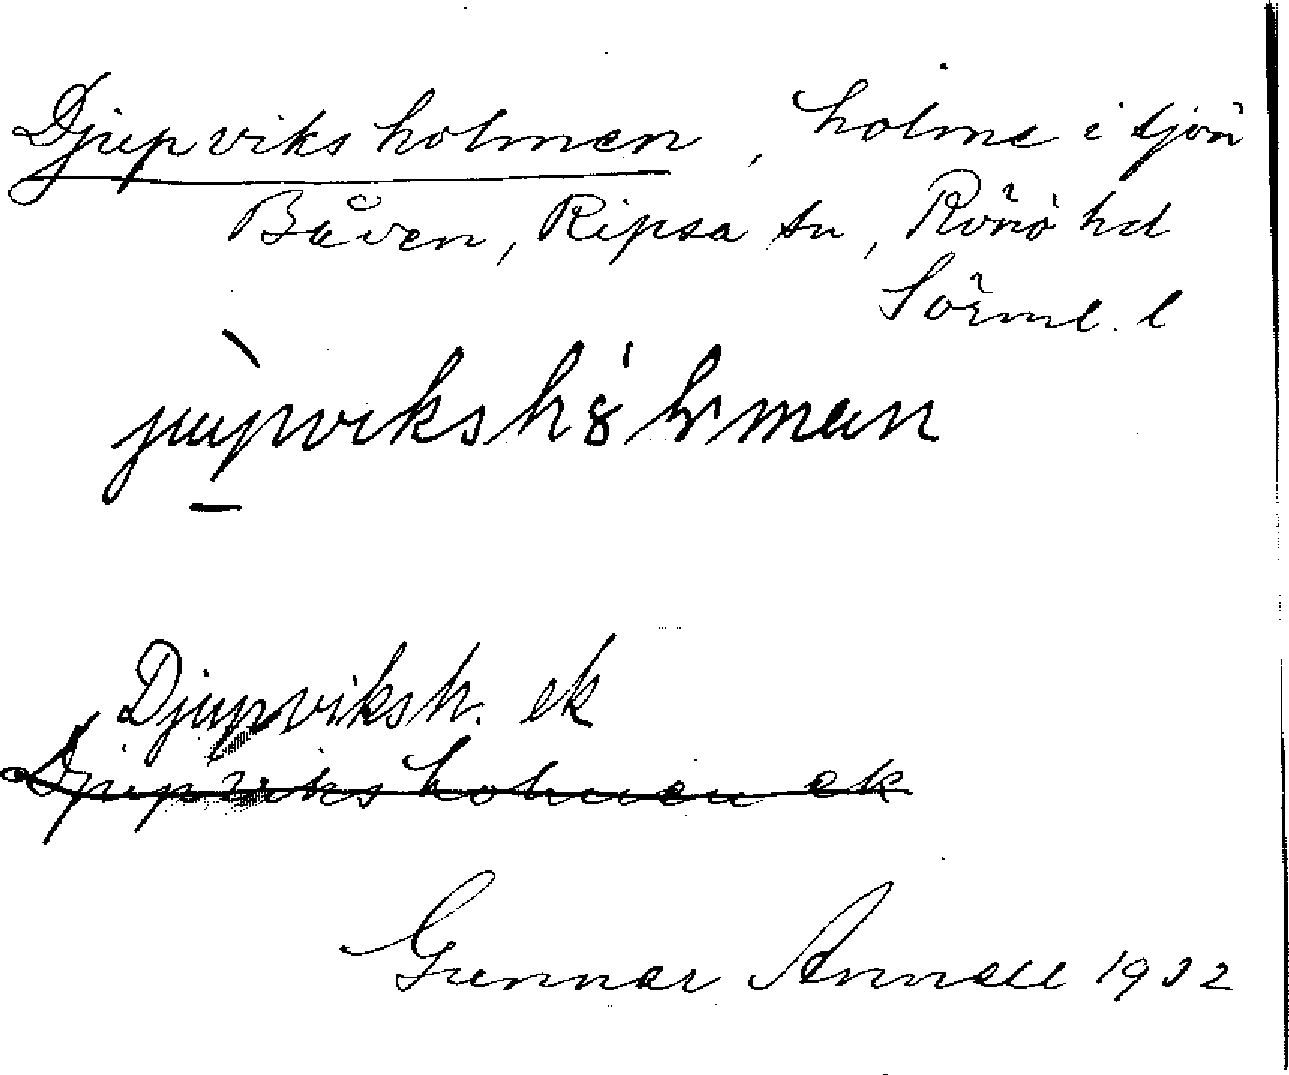 Djupviksholmen, holme i sjön
Båven, Ripsa sn, Rönö hd
Sörml. l
Djupviksh. ek
Djupviksholmen ek
Gunnar Annell 1932